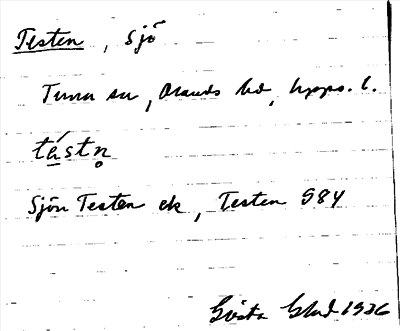 Testen, sjö
Tuna sn, Olands hd, Upps. l.
tästn̥
Sjön Testen ek, Testen G84
Gösta Blad 1936